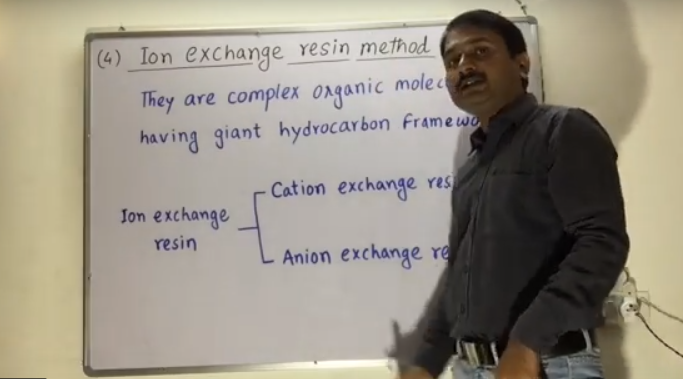 (4) Ion exchange resin method
They are complex organic
having giant hydrocarbon
Ion exchange
resin
Cation exchange
Anion exchange